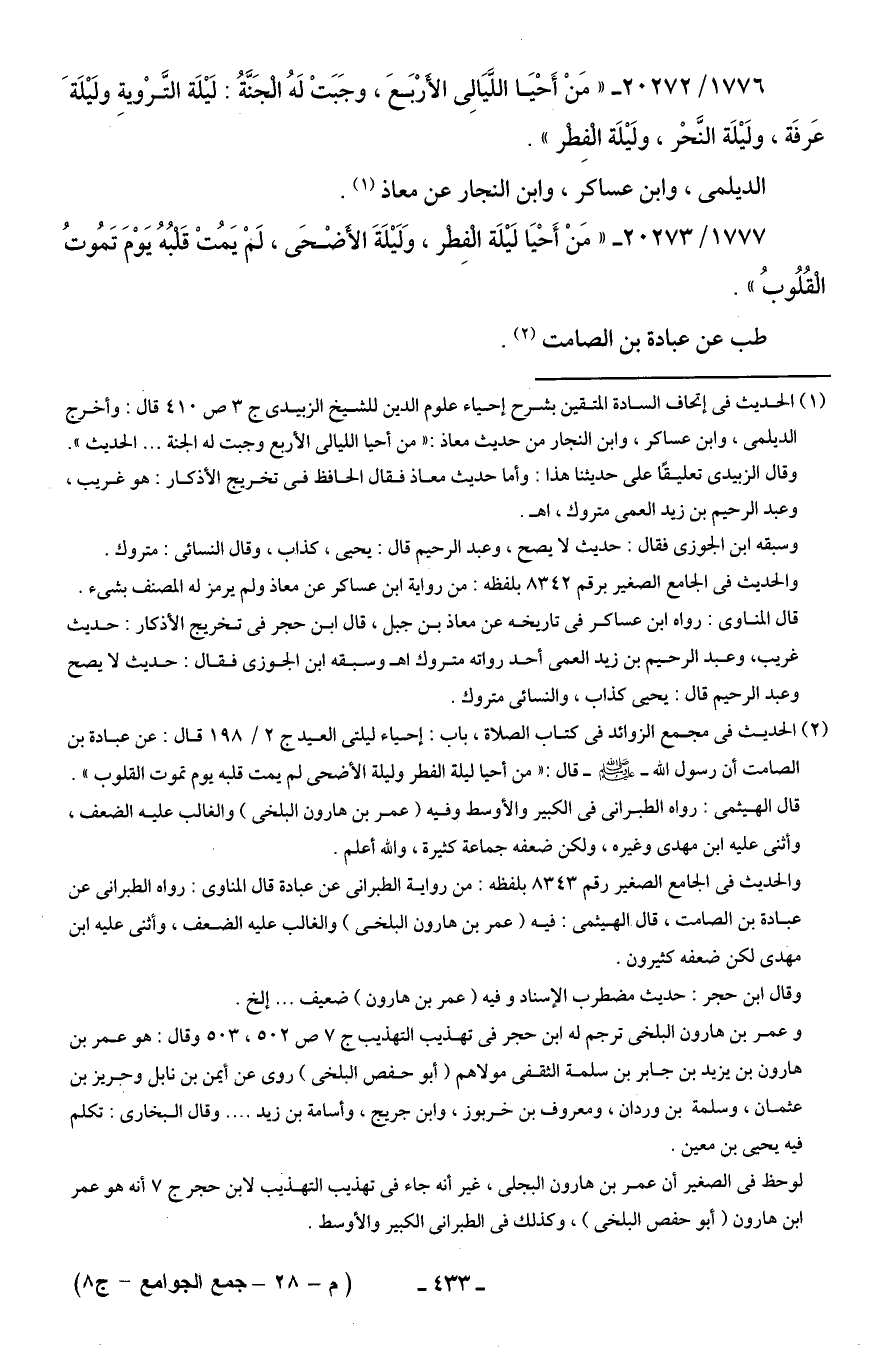 ١٧٧٦/ ٢٠٢٧٢ـ « مَنْ أَحْيَـا اللَّيَالِى الأَرْبَـعَ ، وجَبَتْ لَهُ الْجَنَّةُ : لَيْلَة التَّـرْوِيةِ ولَيْلَةَ
عَرَفَة ، ولَيْلَة النَّحْرِ ، ولَيْلَة الْفِطْرِ » .
الديلمى ، وابن عساكر ، وابن النجار عن معاذ (١) .
١٧٧٧/ ٢٠٢٧٣ـ « مَنْ أَحْيَا لَيْلَة الْفِطْرِ ، وَلَيْلَةَ الأَضْـحَى ، لَمْ يَمُتْ قَلْبُهُ يَوْمَ تَمُوتُ
الْقُلُوبُ » .
طب عن عبادة بن الصامت (٢) .
(١) الحـديث فى إتحاف السـادة المتـقين بشـرح إحيـاء علوم الدين للشـيخ الزبيـدى ج ٣ ص ٤١٠ قال : وأخـرج
الديلمى ، وابن عسـاكر ، وابن النجار من حديث معاذ :« من أحيا الليالى الأربع وجبت له الجنة ... الحديث ».
وقال الزبيدى تعليقًا على حديثنا هذا : وأما حديث معـاذ فـقال الحـافظ فـى تخـريج الأذكـار : هو غـريب ،
وعبد الرحيم بن زيد العمى متروك ، اهـ .
وسبقه ابن الجوزى فقال : حديث لا يصح ، وعبد الرحيم قال : يحيى ، كذاب ، وقال النسائى : متروك .
والحديث فى الجامع الصغير برقم ٨٣٤٢ بلفظه : من رواية ابن عساكر عن معاذ ولم يرمز له المصنف بشىء .
قال المنـاوى : رواه ابن عساكـر فى تاريخـه عن معاذ بـن جبل ، قال ابـن حجر فى تـخريج الأذكار : حـديث
غريب، وعـبد الرحـيم بن زيد العمى أحـد رواته متـروك اهـ وسـبقه ابن الجـوزى فـقـال : حـديث لا يصح
وعبد الرحيم قال : يحيى كذاب ، والنسائى متروك .
(٢) الحديـث فى مجـمع الزوائد فى كتـاب الصلاة ، باب : إحيـاء ليلتى العـيد ج ٢ / ١٩٨ قـال : عن عبـادة بن
الصامت أن رسول الله ـ ﷺ ـ قال :« من أحيا ليلة الفطر وليلة الأضحى لم يمت قلبه يوم تموت القلوب » .
قال الهـيثمى : رواه الطبـرانى فى الكبير والأوسط وفـيه ( عمـر بن هارون البلخى ) والغالب عليـه الضعف ،
وأثنى عليه ابن مهدى وغيره ، ولكن ضعفه جماعة كثيرة ، والله أعلم .
والحديث فى الجامع الصغير رقم ٨٣٤٣ بلفظه : من روايـة الطبرانى عن عبادة قال المناوى : رواه الطبرانى عن
عبـادة بن الصامت ، قال الهـيثمى : فيـه ( عمر بن هارون البلخـى ) والغالب عليه الضـعف ، وأثنى عليه ابن
مهدى لكن ضعفه كثيرون .
وقال ابن حجر : حديث مضطرب الإسناد و فيه ( عمر بن هارون ) ضعيف ... إلخ .
و عمـر بن هارون البلخى ترجم له ابن حجر فى تهـذيب التهذيب ج ٧ ص ٥٠٢ ، ٥٠٣ وقال : هو عـمر بن
هارون بن يزيد بن جـابر بن سلمـة الثقـفى مولاهم ( أبو حـفص البلخى ) روى عن أيمن بن نابل وحـريز بن
عثمـان ، وسلمة بن وردان ، ومعروف بن خـربوز ، وابن جريج ، وأسامة بن زيد .... وقال البـخارى : تكلم
فيه يحيى بن معين .
لوحظ فى الصغير أن عمـر بن هارون البجلى ، غير أنه جاء فى تهذيب التهـذيب لابن حجر ج ٧ أنه هو عمر
ابن هارون ( أبو حفص البلخى ) ، وكذلك فى الطبرانى الكبير والأوسط .
ـ ٤٣٣ ـ
( م – ٢٨ – جمع الجوامع – ج٨)